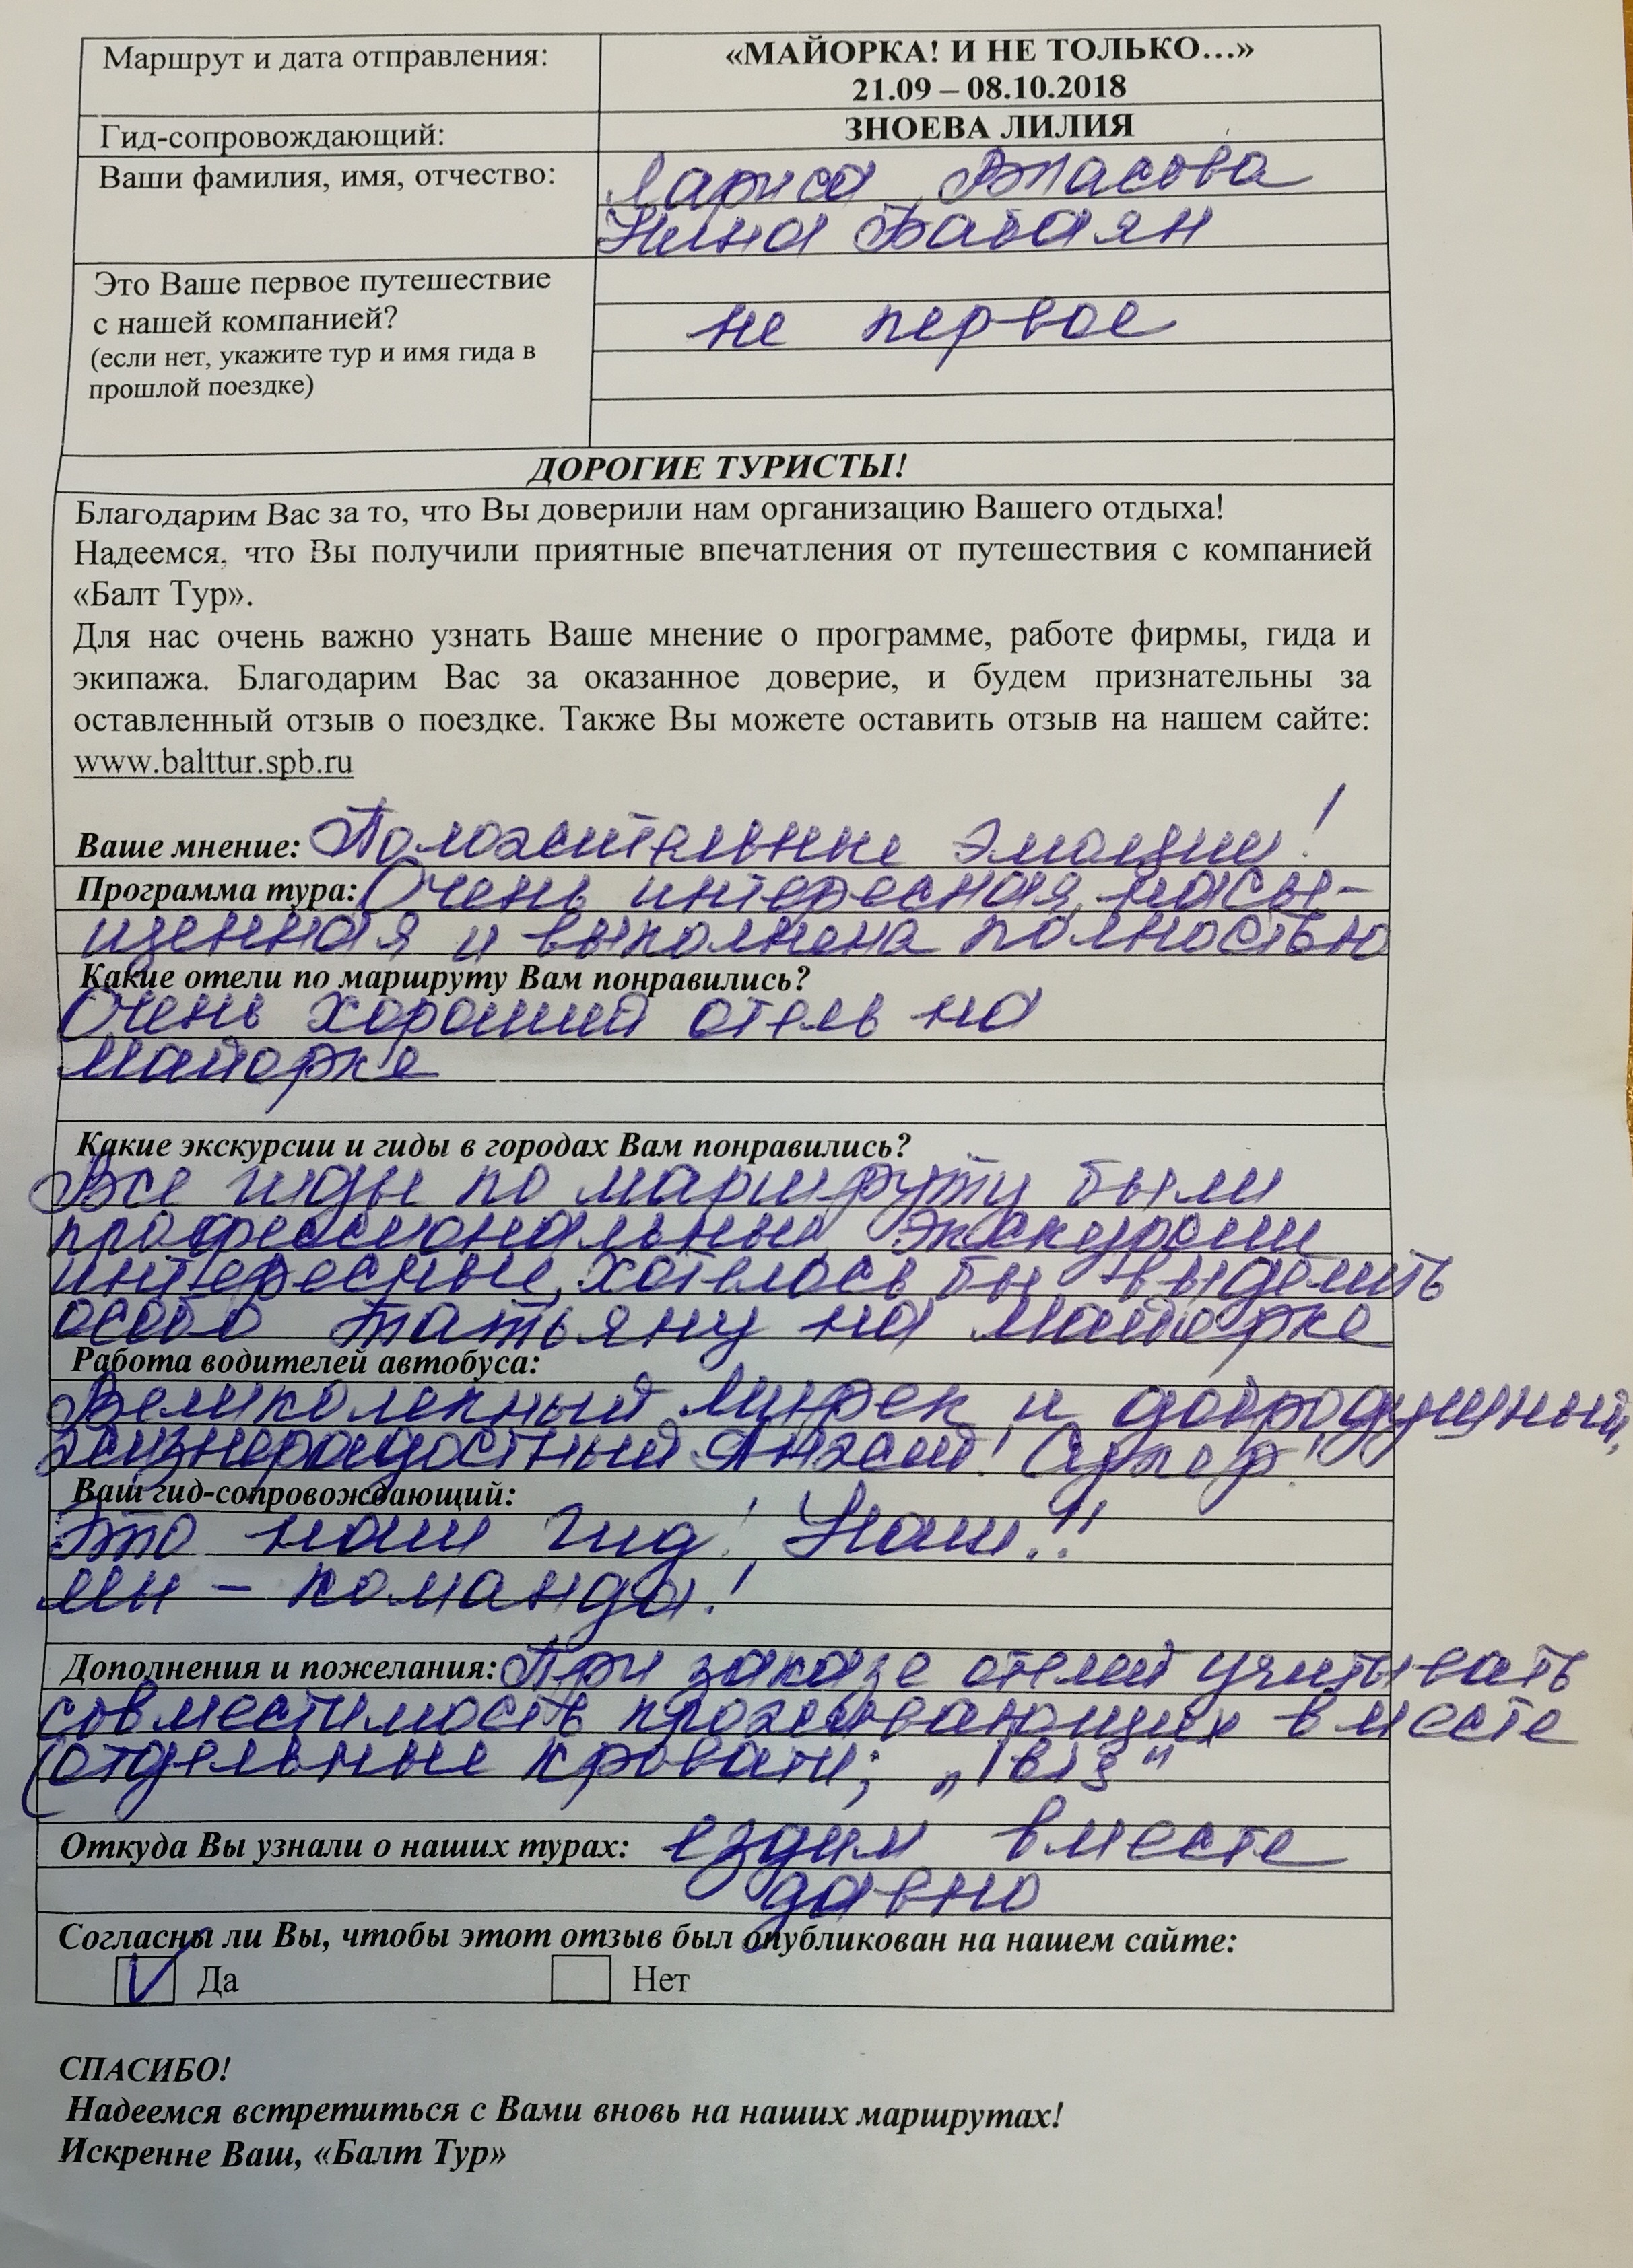 Маршрут и дата отправления:
«МАЙОРКА! И НЕ ТОЛЬКО…»
21.09 – 08.10.2018
Гид-сопровождающий:
ЗНОЕВА ЛИЛИЯ
Ваши фамилия, имя, отчество:
Лариса Власова
Нина Бабаян
Это Ваше первое путешествие
с нашей компанией?
(если нет, укажите тур и имя гида в
прошлой поездке)
не первое
ДОРОГИЕ ТУРИСТЫ!
Благодарим Вас за то, что Вы доверили нам организацию Вашего отдыха!
Надеемся, что Вы получили приятные впечатления от путешествия с компанией
«Балт Тур».
Для нас очень важно узнать Ваше мнение о программе, работе фирмы, гида и
экипажа. Благодарим Вас за оказанное доверие, и будем признательны за
оставленный отзыв о поездке. Также Вы можете оставить отзыв на нашем сайте:
www.balttur.spb.ru
Ваше мнение: Положительные эмоции!
Программа тура: Очень интересная, насы-
щенная и выполнена полностью
Какие отели по маршруту Вам понравились?
Очень хороший отель на
Майорке
Какие экскурсии и гиды в городах Вам понравились?
Все гиды по маршруту были
профессиональны, экскурсии
интересные, хотелось бы выделить
особо Татьяну на Майорке
Работа водителей автобуса:
Великолепный Мирек и добродушный,
жизнерадостный Анжей! Супер!
Ваш гид-сопровождающий:
Это наш гид! Наш!!
мы – команда!
Дополнения и пожелания: При заказе отелей учитывать
совместимость проживающих вместе
(отдельные кровати;
Откуда Вы узнали о наших турах: ездим вместе
давно
Согласны ли Вы, чтобы этот отзыв был опубликован на нашем сайте:
V Да Нет
СПАСИБО!
Надеемся встретиться с Вами вновь на наших маршрутах!
Искренне Ваш, «Балт Тур»